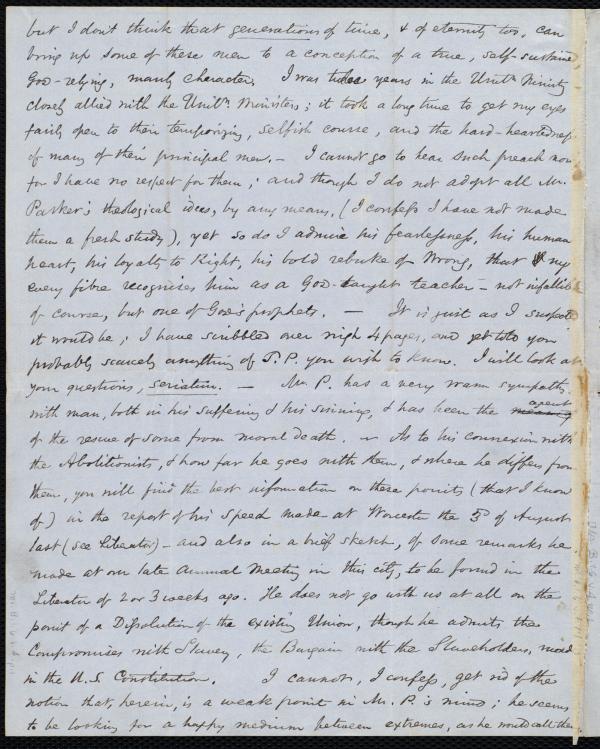 but I don't think that generations of time, & of eternity too, can
bring up some of these men to a conception of a true, self-sustained,
God-relying, manly character. I was twelve years in the Unitn Ministry
closely allied with the Unitn. Ministers; it took a long time to get my eyes
fairly open to their temporizing, selfish course, and the hard-heartedness
of many of their principal men. - I cannot go to hear such preach now
for I have no respect for them; and though I do not adopt all Mr.
Parker's theological ideas, by any means, (I confess I have not made
them a fresh study), yet so do I admire his fearlessness, his human
heart, his loyalty to Right, his bold rebuke of Wrong, that my
every fibre recognises him as a God-taught teacher - not infallible
of course, but one of God's prophets. - It is just as I suspected
it would be; I have scribbled over nigh 4 pages, and yet told you
probably scarcely anything of T.P. you wish to know. I will look at
your questions, seriatim. - Mr. P. has a very warm sympathy
with man, both in his suffering & his sinning, & has been the agent
of the rescue of some from moral death. - As to his connexion with
the Abolitionists, & how far he goes with them, & where he differs from
them, you will find the best information on these points (that I know
of) in the report of his speech made at Worcester the 5th of August
last (see Liberator) - and also in a brief sketch, of some remarks he
made at our late Annual Meeting in this city, to be found in the
Liberator of 2 or 3 weeks ago. He does not go with us at all on the
point of a Dissolution of the existing Union, though he admits the
Compromises with Slavery, the Bargain with the Slaveholders,
in the U.S. Constitution. I cannot, I confess, get rid of the
notion that, herein, is a weak point in Mr. P.'s mind; he seems
to be looking for a happy medium between extremes, as he would call them